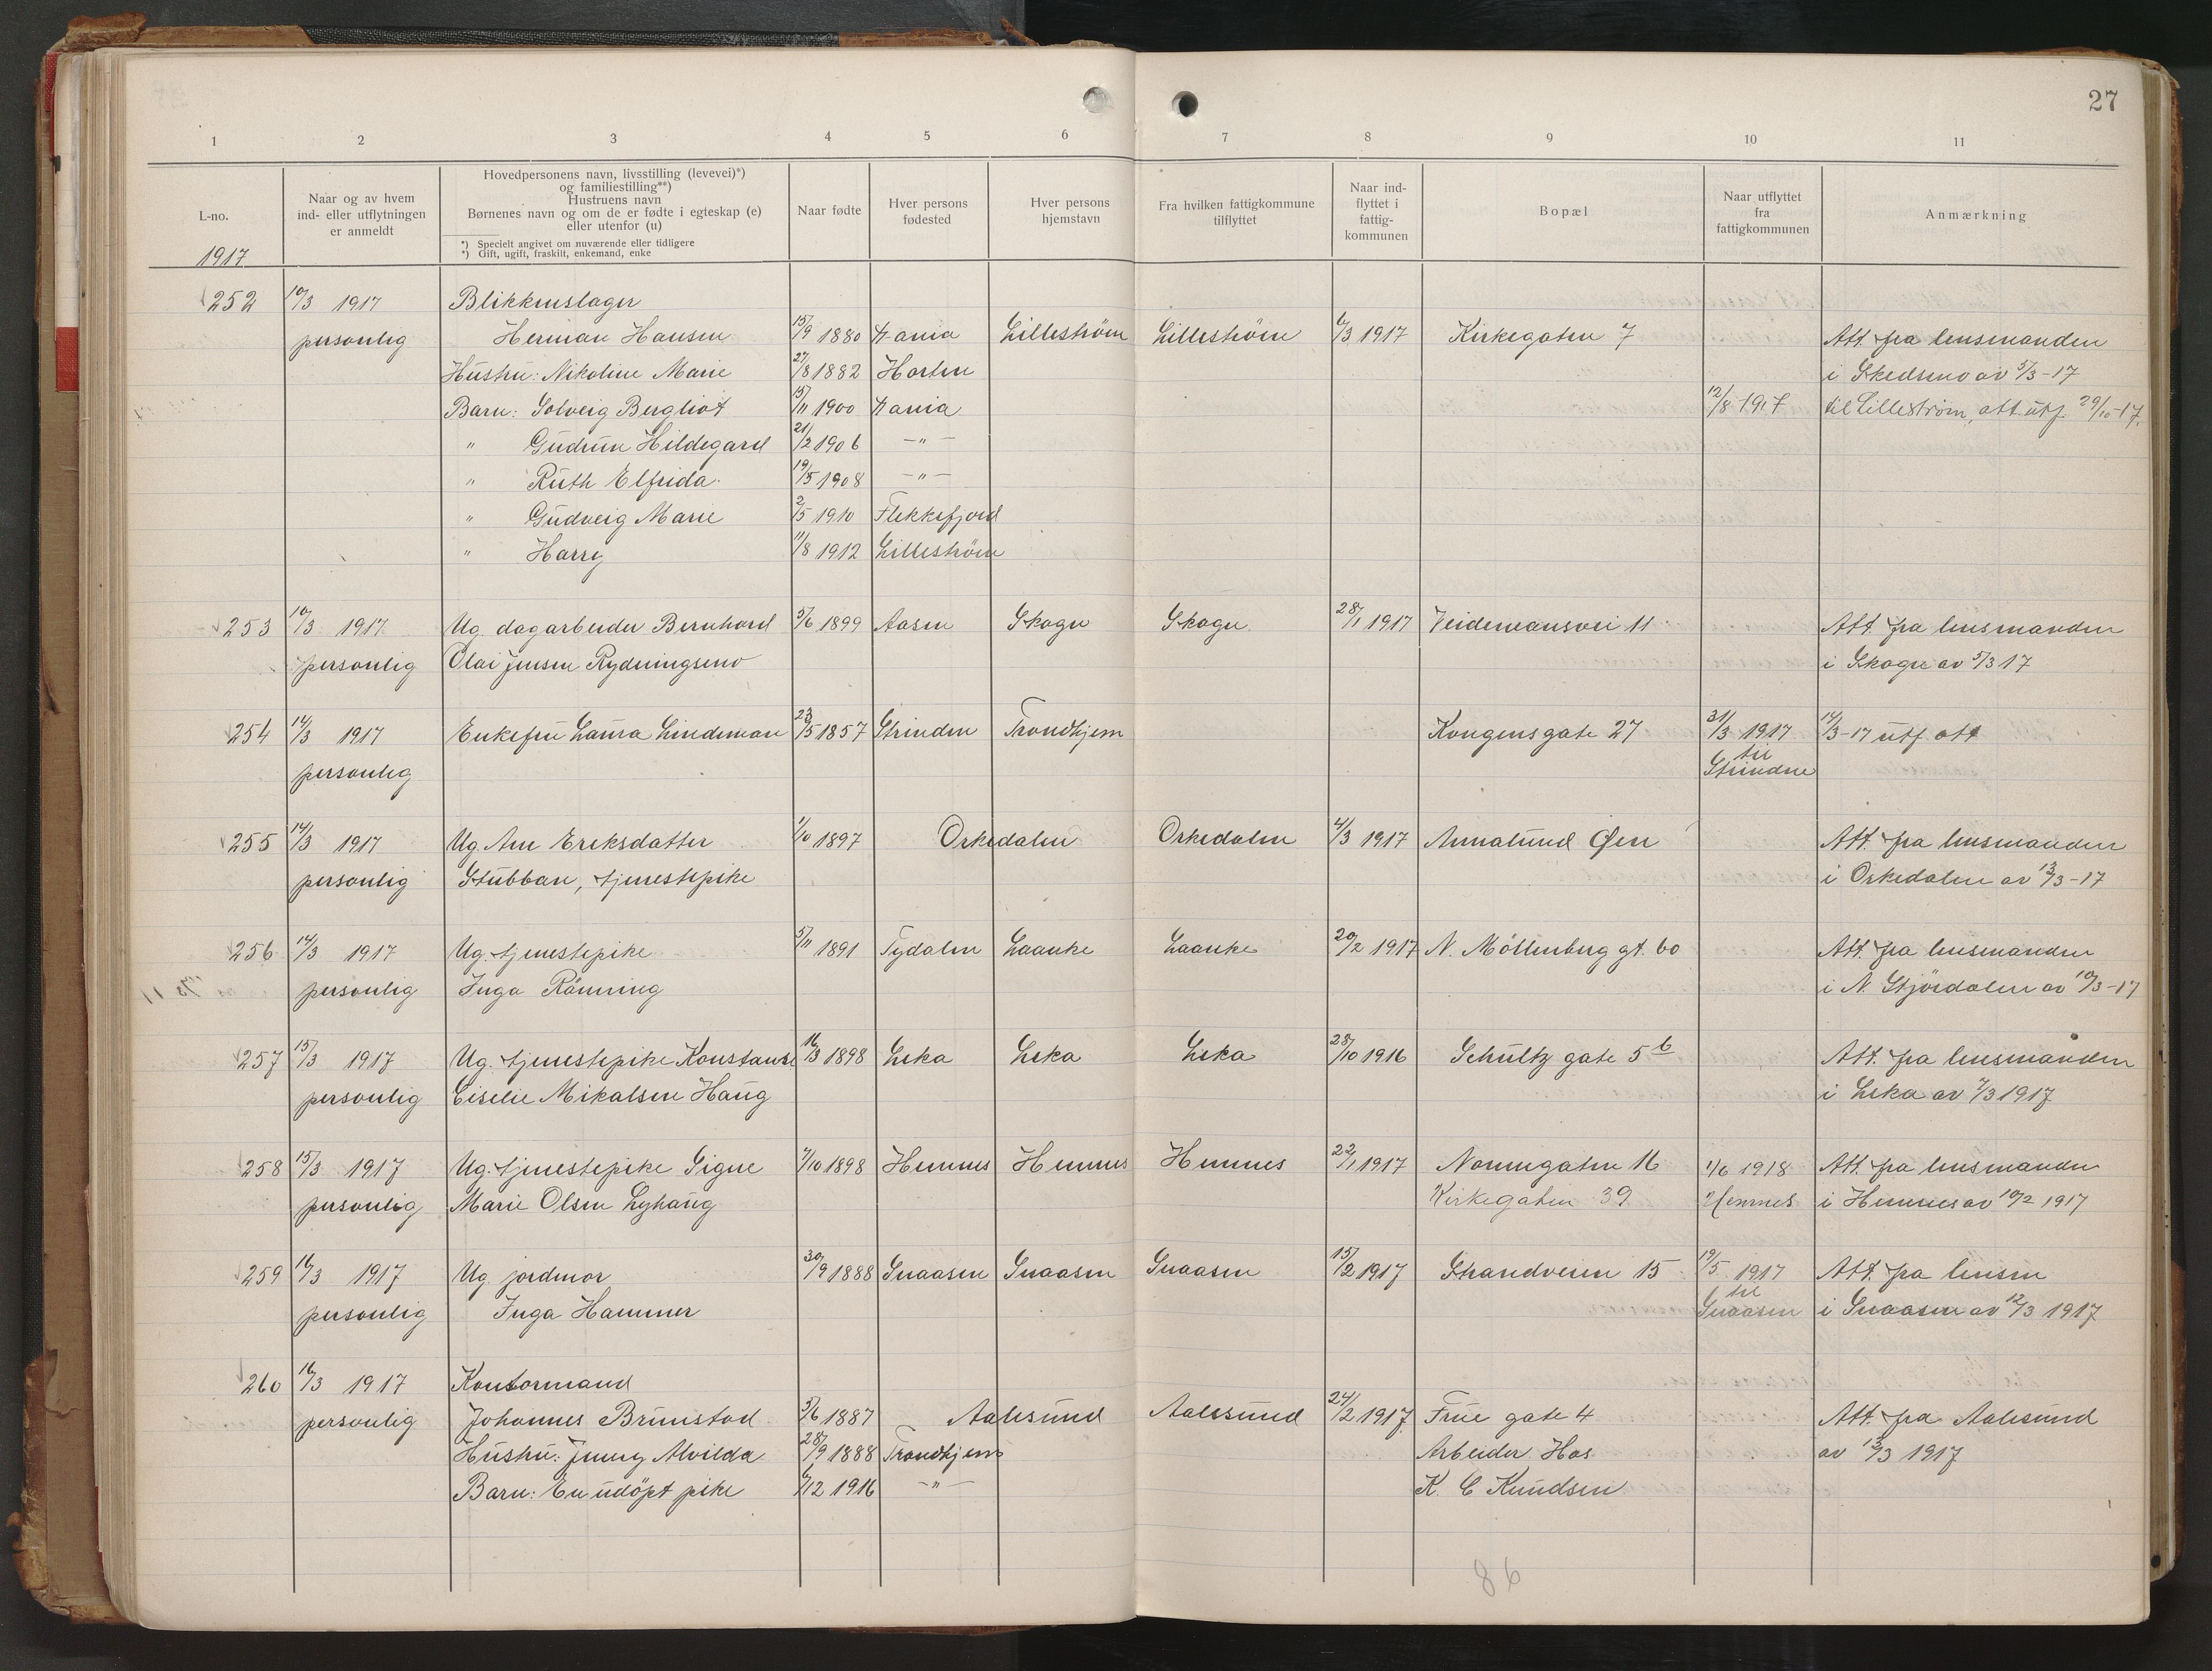 27
1 2 3 4 5 6 7 8 9 10 11
L-no.
1917
Naar og av hvem
ind- eller utflytningen
er anmeldt
Hovedpersonens navn, livsstilling (levevei)*)
og familiestilling**)
Hustruens navn
Børnenes navn og om de er fødte i egteskap (e)
eller utenfor (u)
*) Specielt angivet om nuværende eller tidligere
*) Gift, ugift, fraskilt, enkemand, enke
Naar fødte
Hver persons
fødested
Hver persons
hjemstavn
Fra hvilken fattigkommune
tilflyttet
Naar ind-
flyttet i
fattig-
kommunen
Bopæl
Naar utflyttet
fra
fattigkommunen
Anmærkning
252 10/3 1917 Blikkenslager
personlig Herman Hansen 15/9 1880 Kania Lilleström Lilleström 6/3 1917 Kirkegaten 7 Att. fra lensmanden
Hustru: Nikoline Marie 27/8 1882 Horten i Skedsmo av 5/3-17
Barn: Solveig Bergliot 15/11 1900 Kania 12/8 1917 til Lilleström, att. utf. 29/10-17.
" Gudrun Hildegard 21/2 1906 -"-
" Ruth Elfrida 19/5 1908 -"-
" Gudveig Marie 2/5 1910 Flekkefjord
" Harry 11/8 1912 Lilleström
253 10/3 1917 Ug. dagarbeider Bernhard 5/6 1899 Aasen Skogn Skogn 28/1 1917 Veidemansvei 11 Att. fra lensmanden
personlig Olai Jensen Rydningsmo i Skogn av 5/3 17
254 14/3 1917 Enkefru Laura Lindeman 23/5 1857 Strinden Trondhjem Kongensgate 27 31/3 1917 14/3-17 utf. att
til
personlig Strinden
255 14/3 1917 Ug. Ane Eriksdatter 1/10 1897 Orkedalen Orkedalen 4/3 1917 Annalund Øen Att. fra lensmanden
personlig Stubban, tjenestepike i Orkedalen av 13/3-17
256 14/3 1917 Ug. tjenestepike 5/11 1891 Tydalen Laanke Laanke 20/2 1917 N. Möllenberg gt. 60 Att. fra lensmanden
personlig Inga Rönning i N. Stjördalen av 10/3-17
257 15/3 1917 Ug. tjenestepike Konstanse 16/3 1898 Leka Leka Leka 28/10 1916 Schultz gate 5 b Att. fra lensmanden
personlig Eiselie Mikalsen Haug i Leka av 7/3 1917
258 15/3 1917 Ug. tjenestepike Signe 7/10 1898 Hemnes Hemnes Hemnes 22/1 1917 Nonnegaten 16 1/6 1918 Att. fra lensmanden
personlig Marie Olsen Lyhaug Kirkegaten 39 Hemnes i Hemnes av 10/2 1917
259 16/3 1917 Ug. jordmor 30/9 1888 Snaasen Snaasen Snaasen 15/2 1917 Strandveien 15 19/5 1917 Att. fra lensm
til
personlig Inga Hammer Snaasen i Snaasen av 12/3 1917
260 16/3 1917 Kontormand
personlig Johannes Brunstad 3/6 1887 Aalesund Aalesund 24/2 1917 Frue gate 4 Att. fra Aalesund
Hustru: Jenny Alvilda 28/9 1888 Trondhjem Arbeider Hos av 13/3 1917
Barn: En udöpt pike 6/12 1916 -"- K. C Knudsen
86